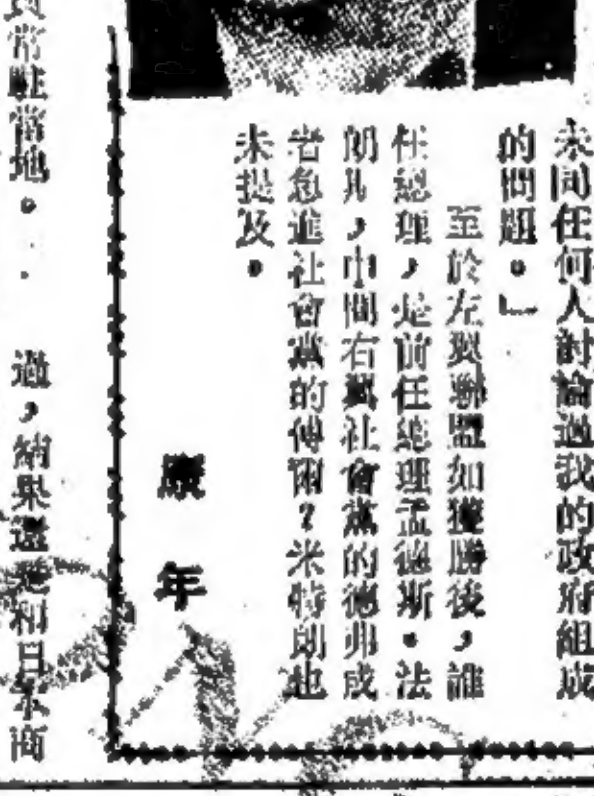 未同任何人討論過我的政府組成
的問題。」
至於左翼聯盟如獲勝後，誰
任總理，是前任總理孟德斯・法
朗士，中間右翼社會黨的德弗或
者急進社會黨的傅爾？米特朗也
未提及。
年
過，結果還是和日本商
員常駐當地。